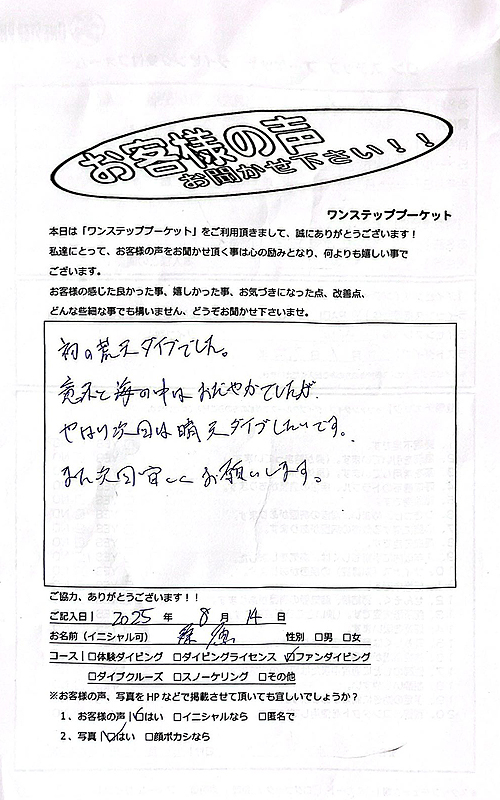 お客様の声
お聞かせ下さい！！
ワンステッププーケット
本日は「ワンステッププーケット」をご利用頂きまして、誠にありがとうございます！
私達にとって、お客様の声をお聞かせ頂く事は心の励みとなり、何よりも嬉しい事で
ございます。
お客様の感じた良かった事、嬉しかった事、お気づきになった点、改善点、
どんな些細な事でも構いません、どうぞお聞かせ下さいませ。
初の荒天ダイブでした。
意外と海の中はおだやかでしたが、
やはり次回は晴天ダイブしたいです。
また次回宜しくお願いします。
ご協力、ありがとうございます！！
ご記入日 | 2025 年 8 月 14 日
お名前（イニシャル可） 性別 □男 □女
コース | □体験ダイビング □ダイビングライセンス ☑ファンダイビング
□ダイブクルーズ □スノーケリング □その他
※お客様の声、写真をHPなどで掲載させて頂いても宜しいでしょうか？
1、お客様の声 | ☑はい □イニシャルなら □匿名で
2、写真 | ☑はい □顔ボカシなら